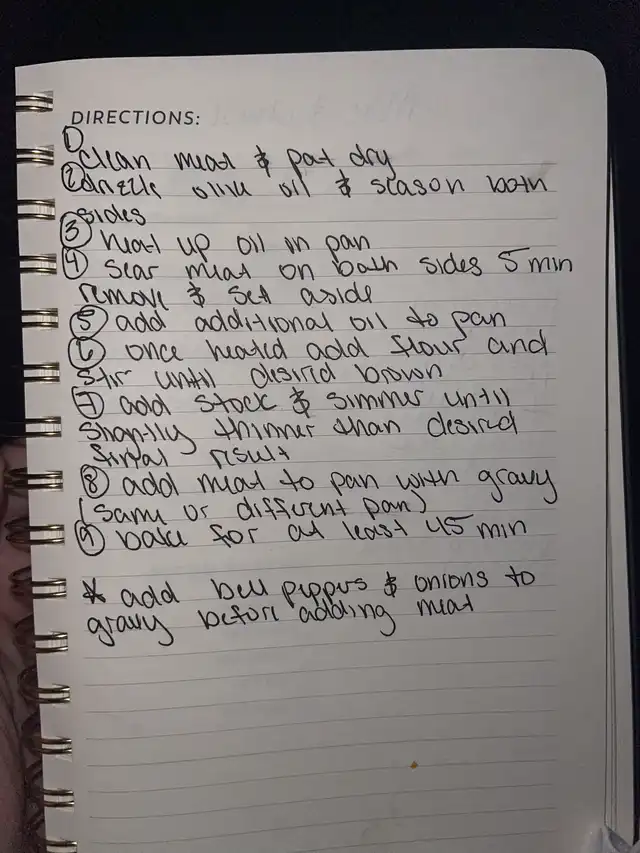 DIRECTIONS:
① clean meat & pat dry
② drizzle olive oil & season both
sides
③ heat up oil in pan
④ sear meat on both sides 5 min
remove & set aside
⑤ add additional oil to pan
⑥ once heated add flour and
stir until desired brown
⑦ add stock & simmer until
slightly thinner than desired
final result
⑧ add meat to pan with gravy
(same or different pan)
⑨ bake for at least 45 min
* add bell peppers & onions to
gravy before adding meat